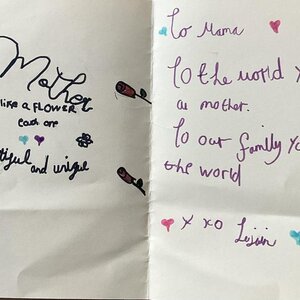 Mother
like a FLOWER
each one
tiful and unique
To Mama
To the world Y
a mother.
To our family Yo
the world
X XO